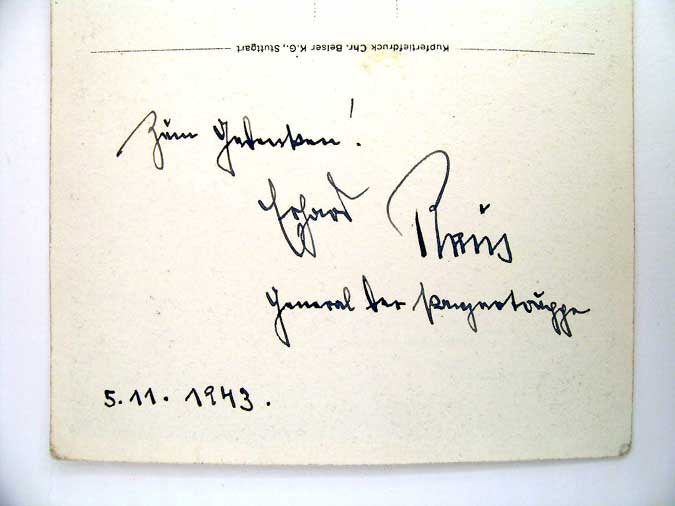 Kupfertiefdruck Chr. Belser K.G., Stuttgart
Zum Gedenken!
Erhard Raus
General der Panzertruppe
5.11.1943.